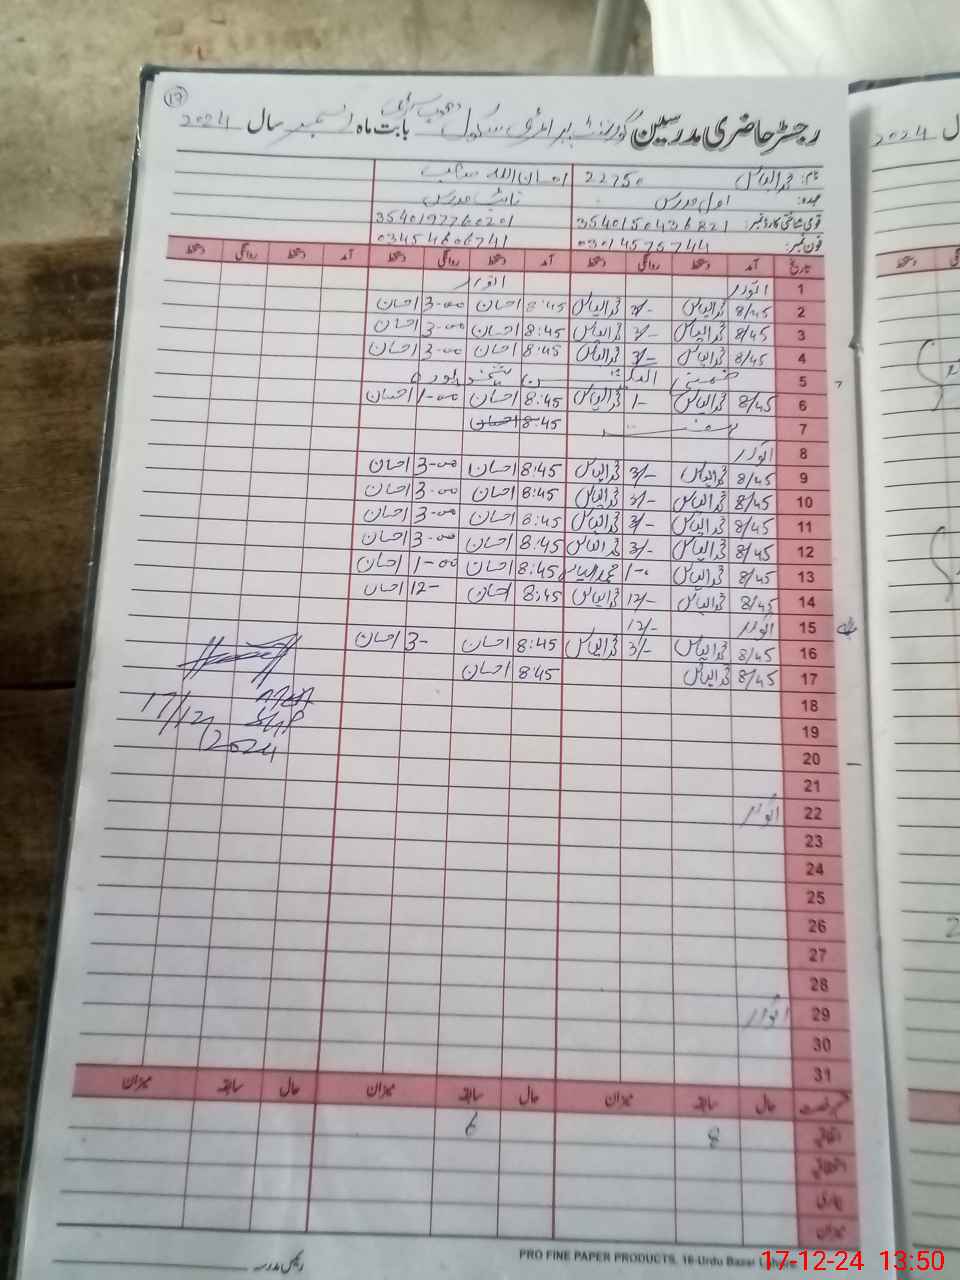 17
رجسٹر حاضری مدرسین گورنمنٹ پرائمری سکول بابت ماہ دسمبر سال 2024
نام: محمد الیاس 22750 احسان اللہ صاحب
عہدہ: اول مدرس نائب مدرس
قومی شناختی کارڈ نمبر: 3540150436821 3540197760201
فون نمبر: 03014575744 03454606741
تاریخ آمد دستخط روانگی دستخط آمد دستخط روانگی دستخط آمد دستخط روانگی دستخط
1 اتوار اتوار
2 8/45 محمد الیاس 3/- محمد الیاس 8:45 احسان 3-00 احسان
3 8/45 محمد الیاس 3/- محمد الیاس 8:45 احسان 3-00 احسان
4 8/45 محمد الیاس 3/- محمد الیاس 8:45 احسان 3-00 احسان
5 ضمنی الیکشن شیخوپورہ
6 8/45 محمد الیاس 1- محمد الیاس 8:45 احسان 1-00 احسان
7 8:45 احسان
8 اتوار
9 8/45 محمد الیاس 3/- محمد الیاس 8:45 احسان 3-00 احسان
10 8/45 محمد الیاس 3/- محمد الیاس 8:45 احسان 3-00 احسان
11 8/45 محمد الیاس 3/- محمد الیاس 8:45 احسان 3-00 احسان
12 8/45 محمد الیاس 3/- محمد الیاس 8:45 احسان 3-00 احسان
13 8/45 محمد الیاس 1-0 محمد الیاس 8:45 احسان 1-00 احسان
14 8/45 محمد الیاس 12/- محمد الیاس 8:45 احسان 12- احسان
15 اتوار 12/-
16 8/45 محمد الیاس 3/- محمد الیاس 8:45 احسان 3- احسان
17 8/45 محمد الیاس 8:45 احسان
18
17/12/2024
19
20
21
22 اتوار
23
24
25
26
27
28
29 اتوار
30
31
حال سابقہ میزان حال سابقہ میزان حال سابقہ میزان
اتفاقیہ 8 6
استحقاقیہ
بیماری
میزان
رئیس مدرسہ
PRO FINE PAPER PRODUCTS, 16-Urdu Bazar Lahore
17-12-24 13:50